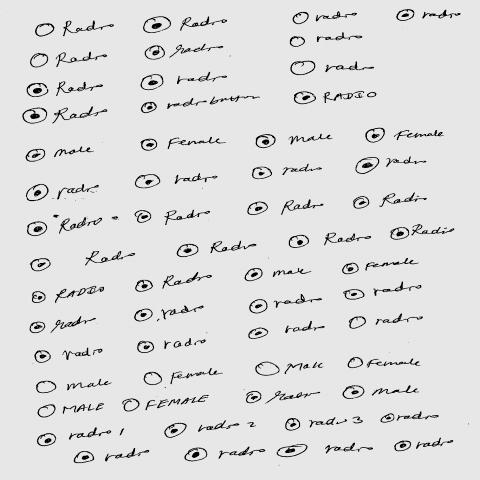 Radio Radio radio radio
Radio radio radio
Radio radio radio
Radio radio button RADIO
male Female male Female
radio radio radio radio
Radio Radio Radio Radio
Radio Radio Radio Radio
RADIO Radio male Female
radio radio radio radio
radio radio radio radio
male Female Male Female
MALE FEMALE radio male
radio 1 radio 2 radio 3 radio
radio radio radio radio